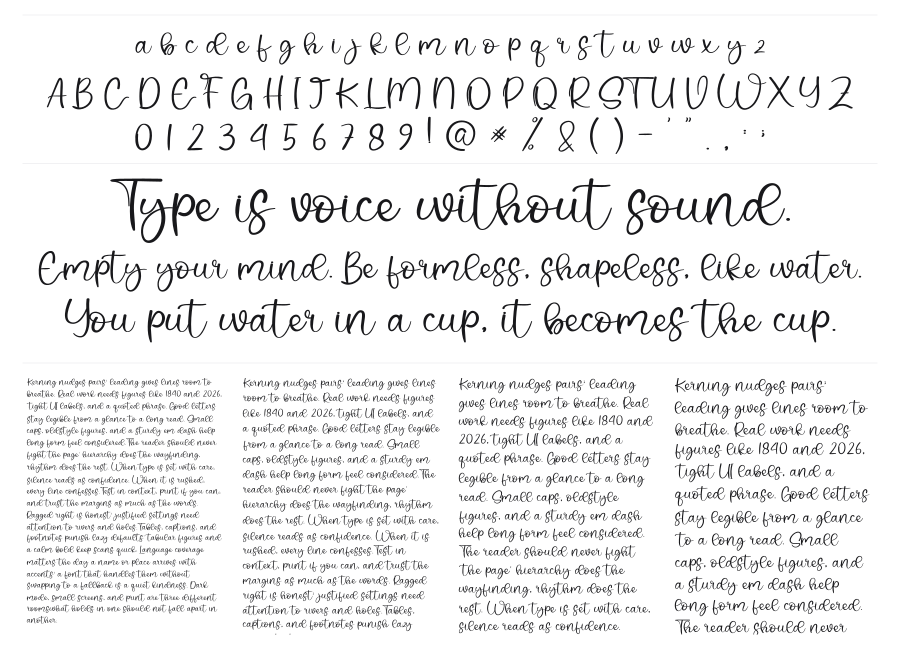 a b c d e f g h i j k l m n o p q r s t u v w x y z
A B C D E F G H I J K L M N O P Q R S T U V W X Y Z
0 1 2 3 4 5 6 7 8 9 ! @ * % & ( ) - ' " . , : ;
Type is voice without sound.
Empty your mind. Be formless, shapeless, like water.
You put water in a cup, it becomes the cup.
Kerning nudges pairs; leading gives lines room to
breathe. Real work needs figures like 1840 and 2026,
tight UI labels, and a quoted phrase. Good letters
stay legible from a glance to a long read. Small
caps, oldstyle figures, and a sturdy em dash help
long form feel considered. The reader should never
fight the page; hierarchy does the wayfinding,
rhythm does the rest. When type is set with care,
silence reads as confidence. When it is rushed,
every line confesses. Test in context, print if you can,
and trust the margins as much as the words.
Ragged right is honest; justified settings need
attention to rivers and holes. Tables, captions, and
footnotes punish lazy defaults. Tabular figures and
a calm bold keep scans quick. Language coverage
matters the day a name or place arrives with
accents; a font that handles them without
swapping to a fallback is a quiet kindness. Dark
mode, small screens, and print are three different
rooms; what holds in one should not fall apart in
another.
Kerning nudges pairs; leading gives lines
room to breathe. Real work needs figures
like 1840 and 2026, tight UI labels, and
a quoted phrase. Good letters stay legible
from a glance to a long read. Small
caps, oldstyle figures, and a sturdy em
dash help long form feel considered. The
reader should never fight the page;
hierarchy does the wayfinding, rhythm
does the rest. When type is set with care,
silence reads as confidence. When it is
rushed, every line confesses. Test in
context, print if you can, and trust the
margins as much as the words. Ragged
right is honest; justified settings need
attention to rivers and holes. Tables,
captions, and footnotes punish lazy
Kerning nudges pairs; leading
gives lines room to breathe. Real
work needs figures like 1840 and
2026, tight UI labels, and a
quoted phrase. Good letters stay
legible from a glance to a long
read. Small caps, oldstyle
figures, and a sturdy em dash
help long form feel considered.
The reader should never fight
the page; hierarchy does the
wayfinding, rhythm does the
rest. When type is set with care,
silence reads as confidence.
Kerning nudges pairs;
leading gives lines room to
breathe. Real work needs
figures like 1840 and 2026,
tight UI labels, and a
quoted phrase. Good letters
stay legible from a glance
to a long read. Small
caps, oldstyle figures, and
a sturdy em dash help
long form feel considered.
The reader should never